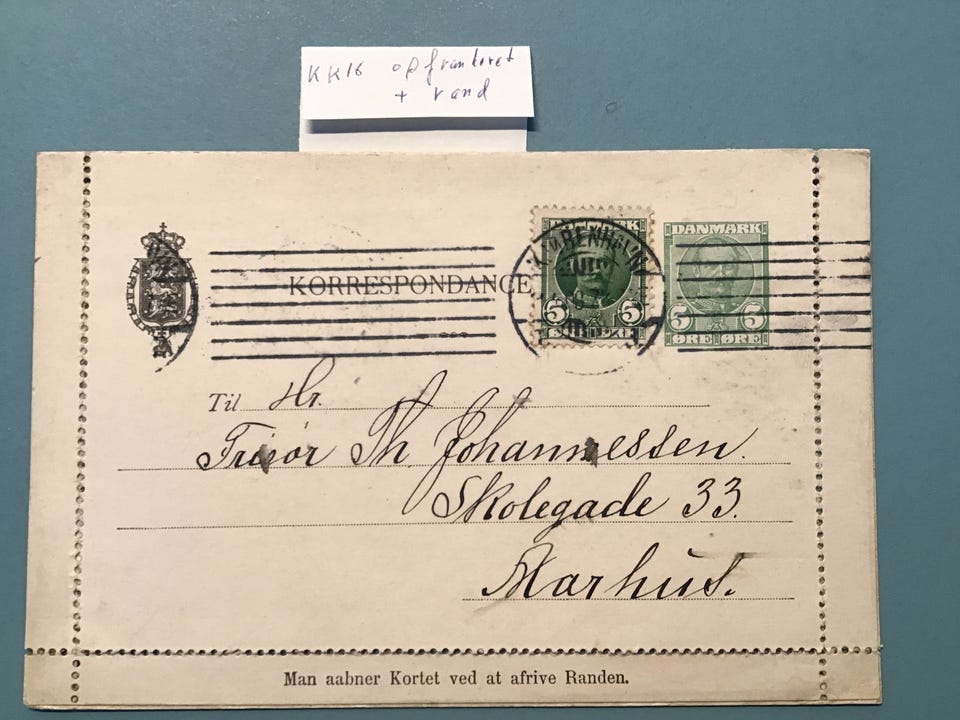 KK16 opfrankeret
+ rand
KORRESPONDANCE
KJØBENHAVN
5 5
DANMARK
5 5
ØRE ØRE
Til Hr.
Frisør Th. Johannessen.
Skolegade 33.
Aarhus.
Man aabner Kortet ved at afrive Randen.